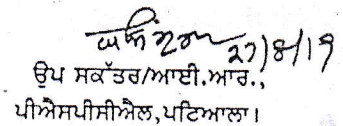 27/8/19
ਉਪ ਸਕੱਤਰ/ਆਈ.ਆਰ.,
ਪੀਐਸਪੀਸੀਐਲ,ਪਟਿਆਲਾ।